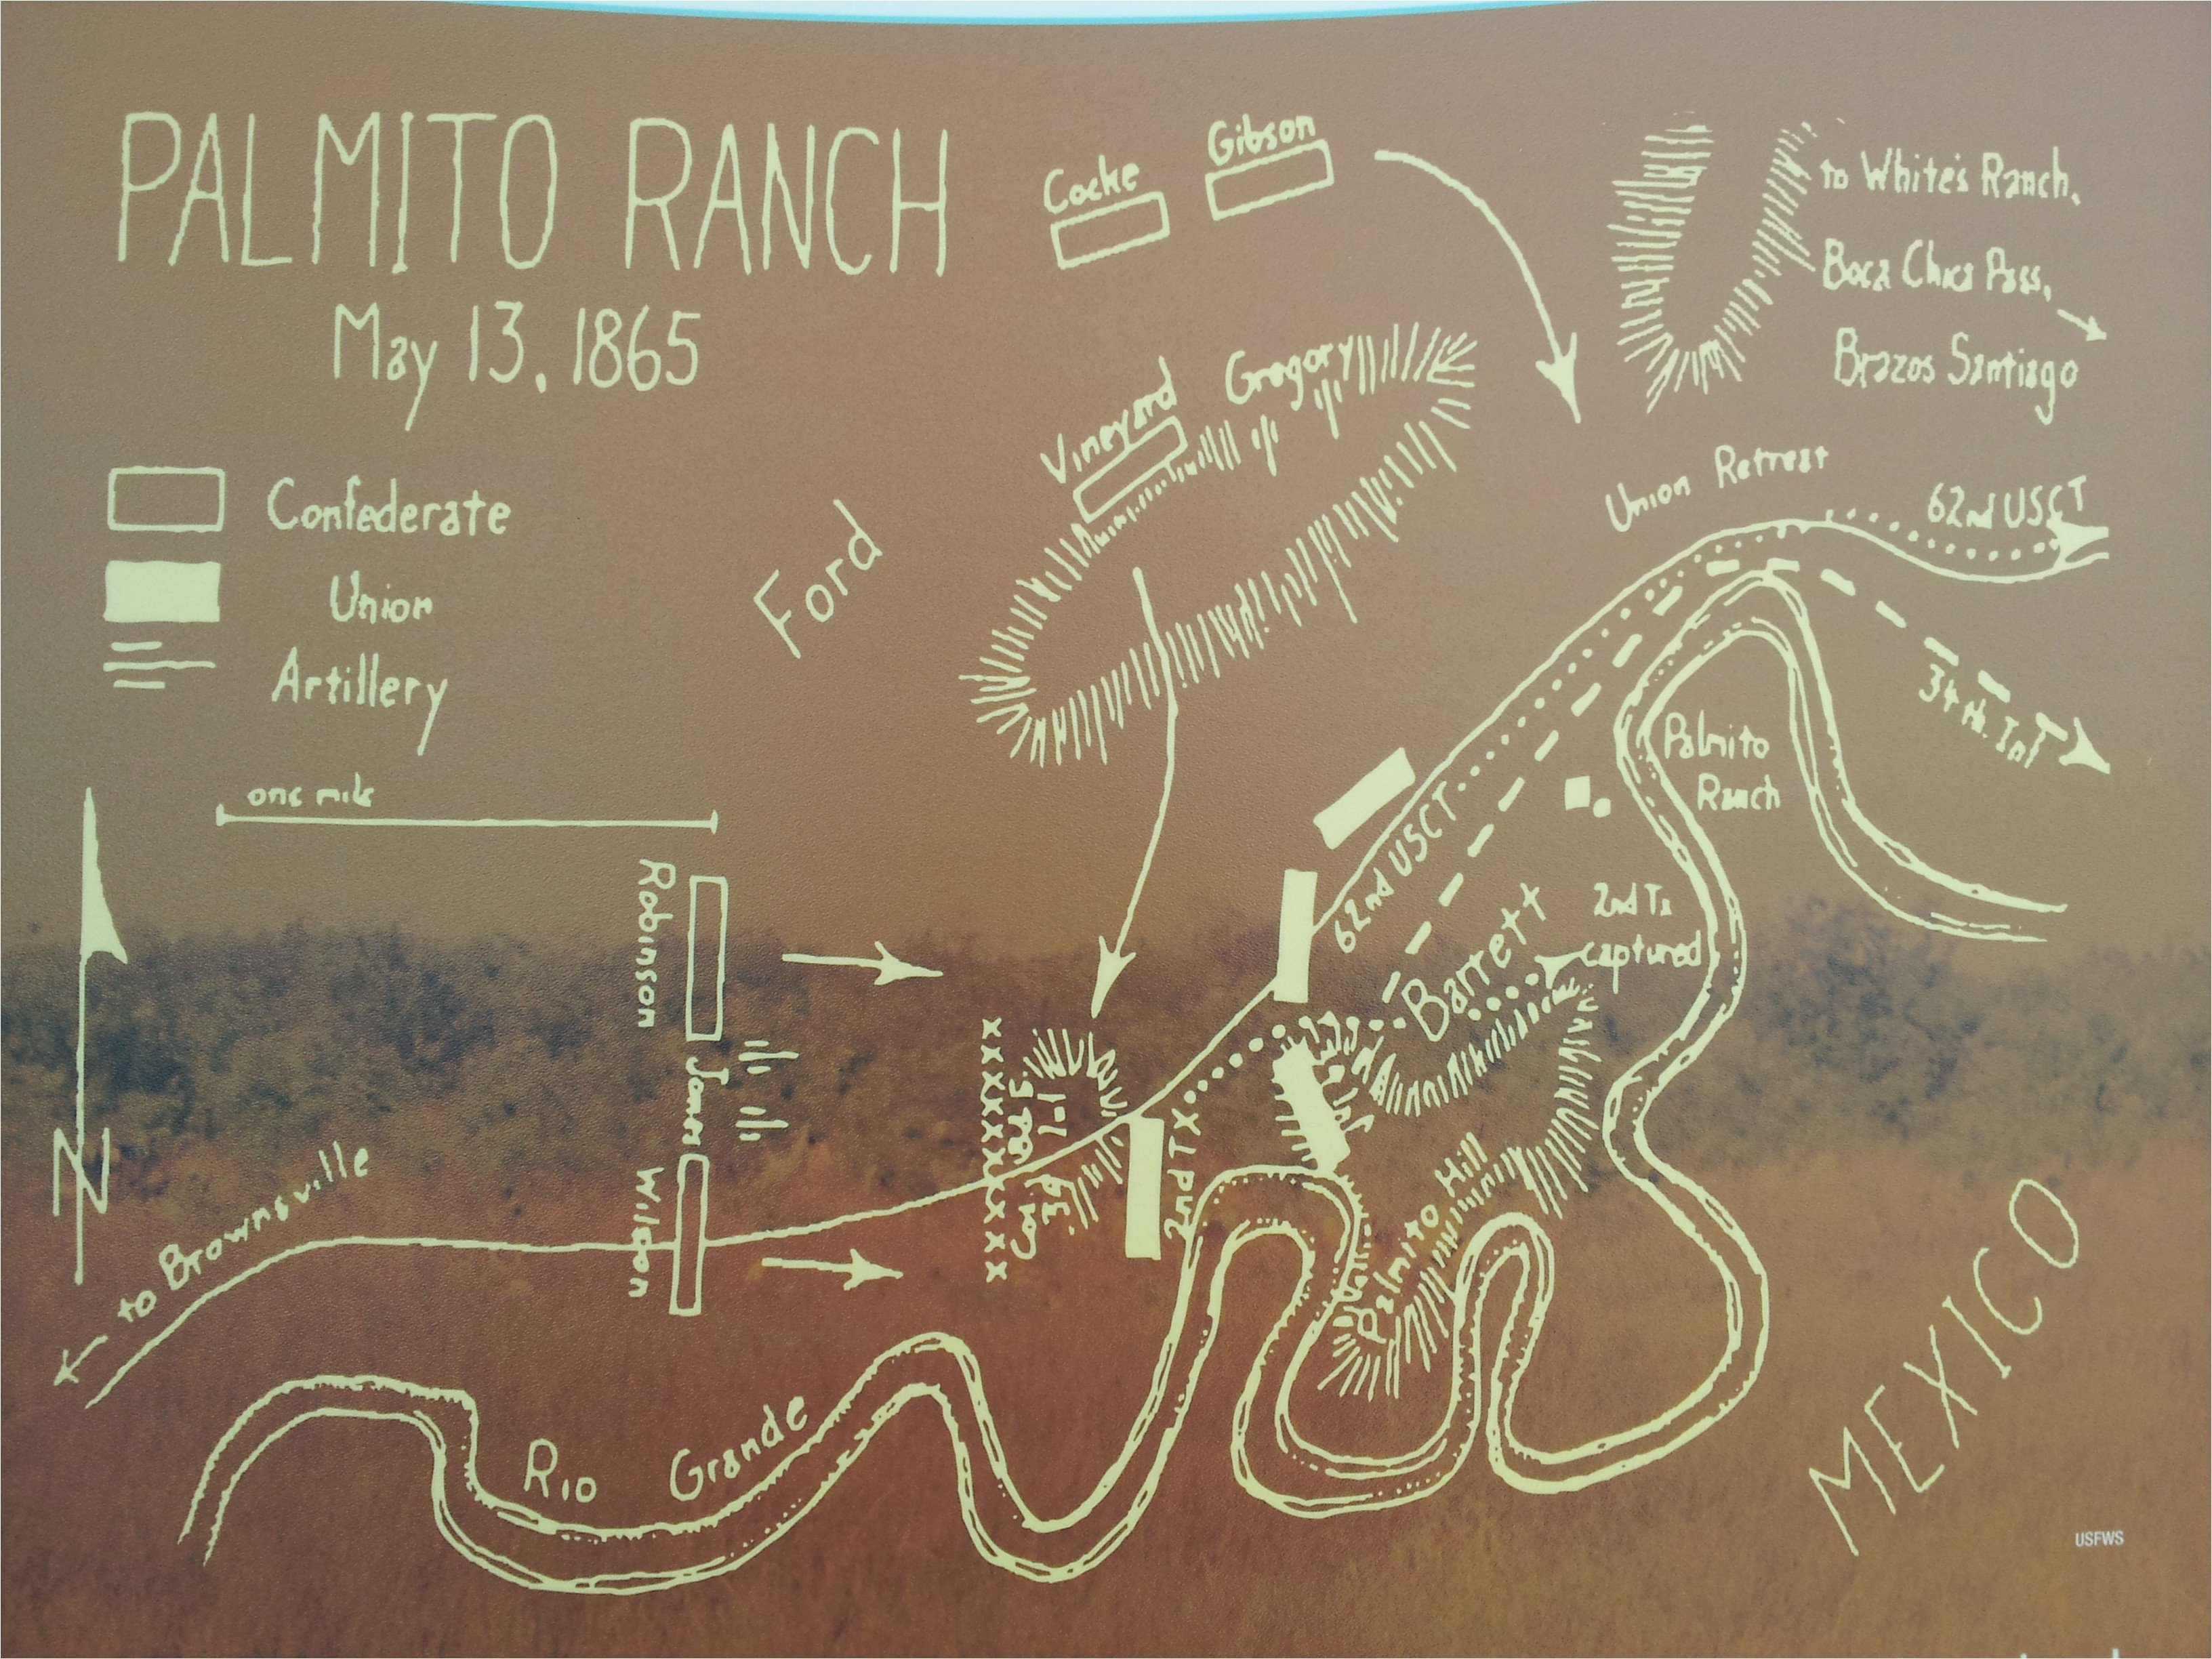 PALMITO RANCH
May 13, 1865
Confederate
Union
Artillery
one mile
N
to Brownsville
Rio Grande
Robinson
Jones
Wilson
Ford
Cocke
Gibson
Vineyard
Gregory
to White's Ranch,
Boca Chica Pass,
Brazos Santiago
Union Retreat
62nd USCT
34th. Inf
Palmito
Ranch
62nd USCT
Barrett
2nd Tx
captured
2nd TX
Palmito Hill
MEXICO
USFWS